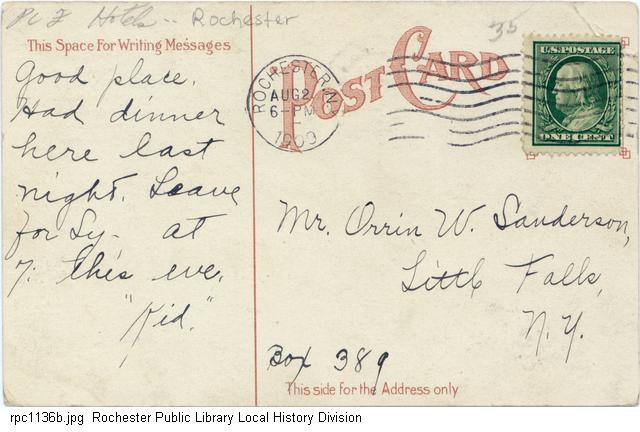 Hotels -- Rochester
35
This Space For Writing Messages
POST CARD
ROCHESTER, N.
AUG 2
6 - PM
1909
U.S. POSTAGE
ONE CENT
Good place.
Had dinner
here last
night. Leave
for Sy- at
7. this eve.
"Kid."
Mr. Orrin W. Sanderson,
Little Falls,
N.Y.
Box 389
This side for the Address only
rpc1136b.jpg Rochester Public Library Local History Division